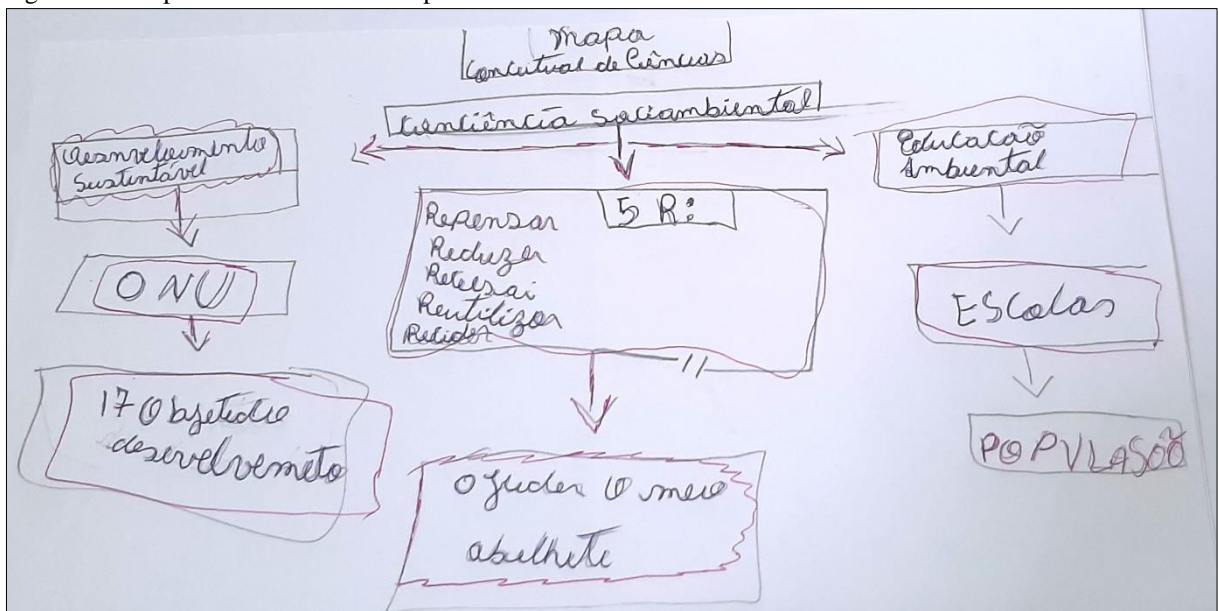 Mapa
Concutual de Ciências
Conciência sociambiental
Desenvolvimento
Sustentável
ONU
17 Objetidio
desevelvemeto
5 R:
Repensar
Reduzer
Recusai
Reutilizar
Recider
ojuder o meio
abelhete
Educacaõ
Ambiental
EScolas
POPULASOÕ